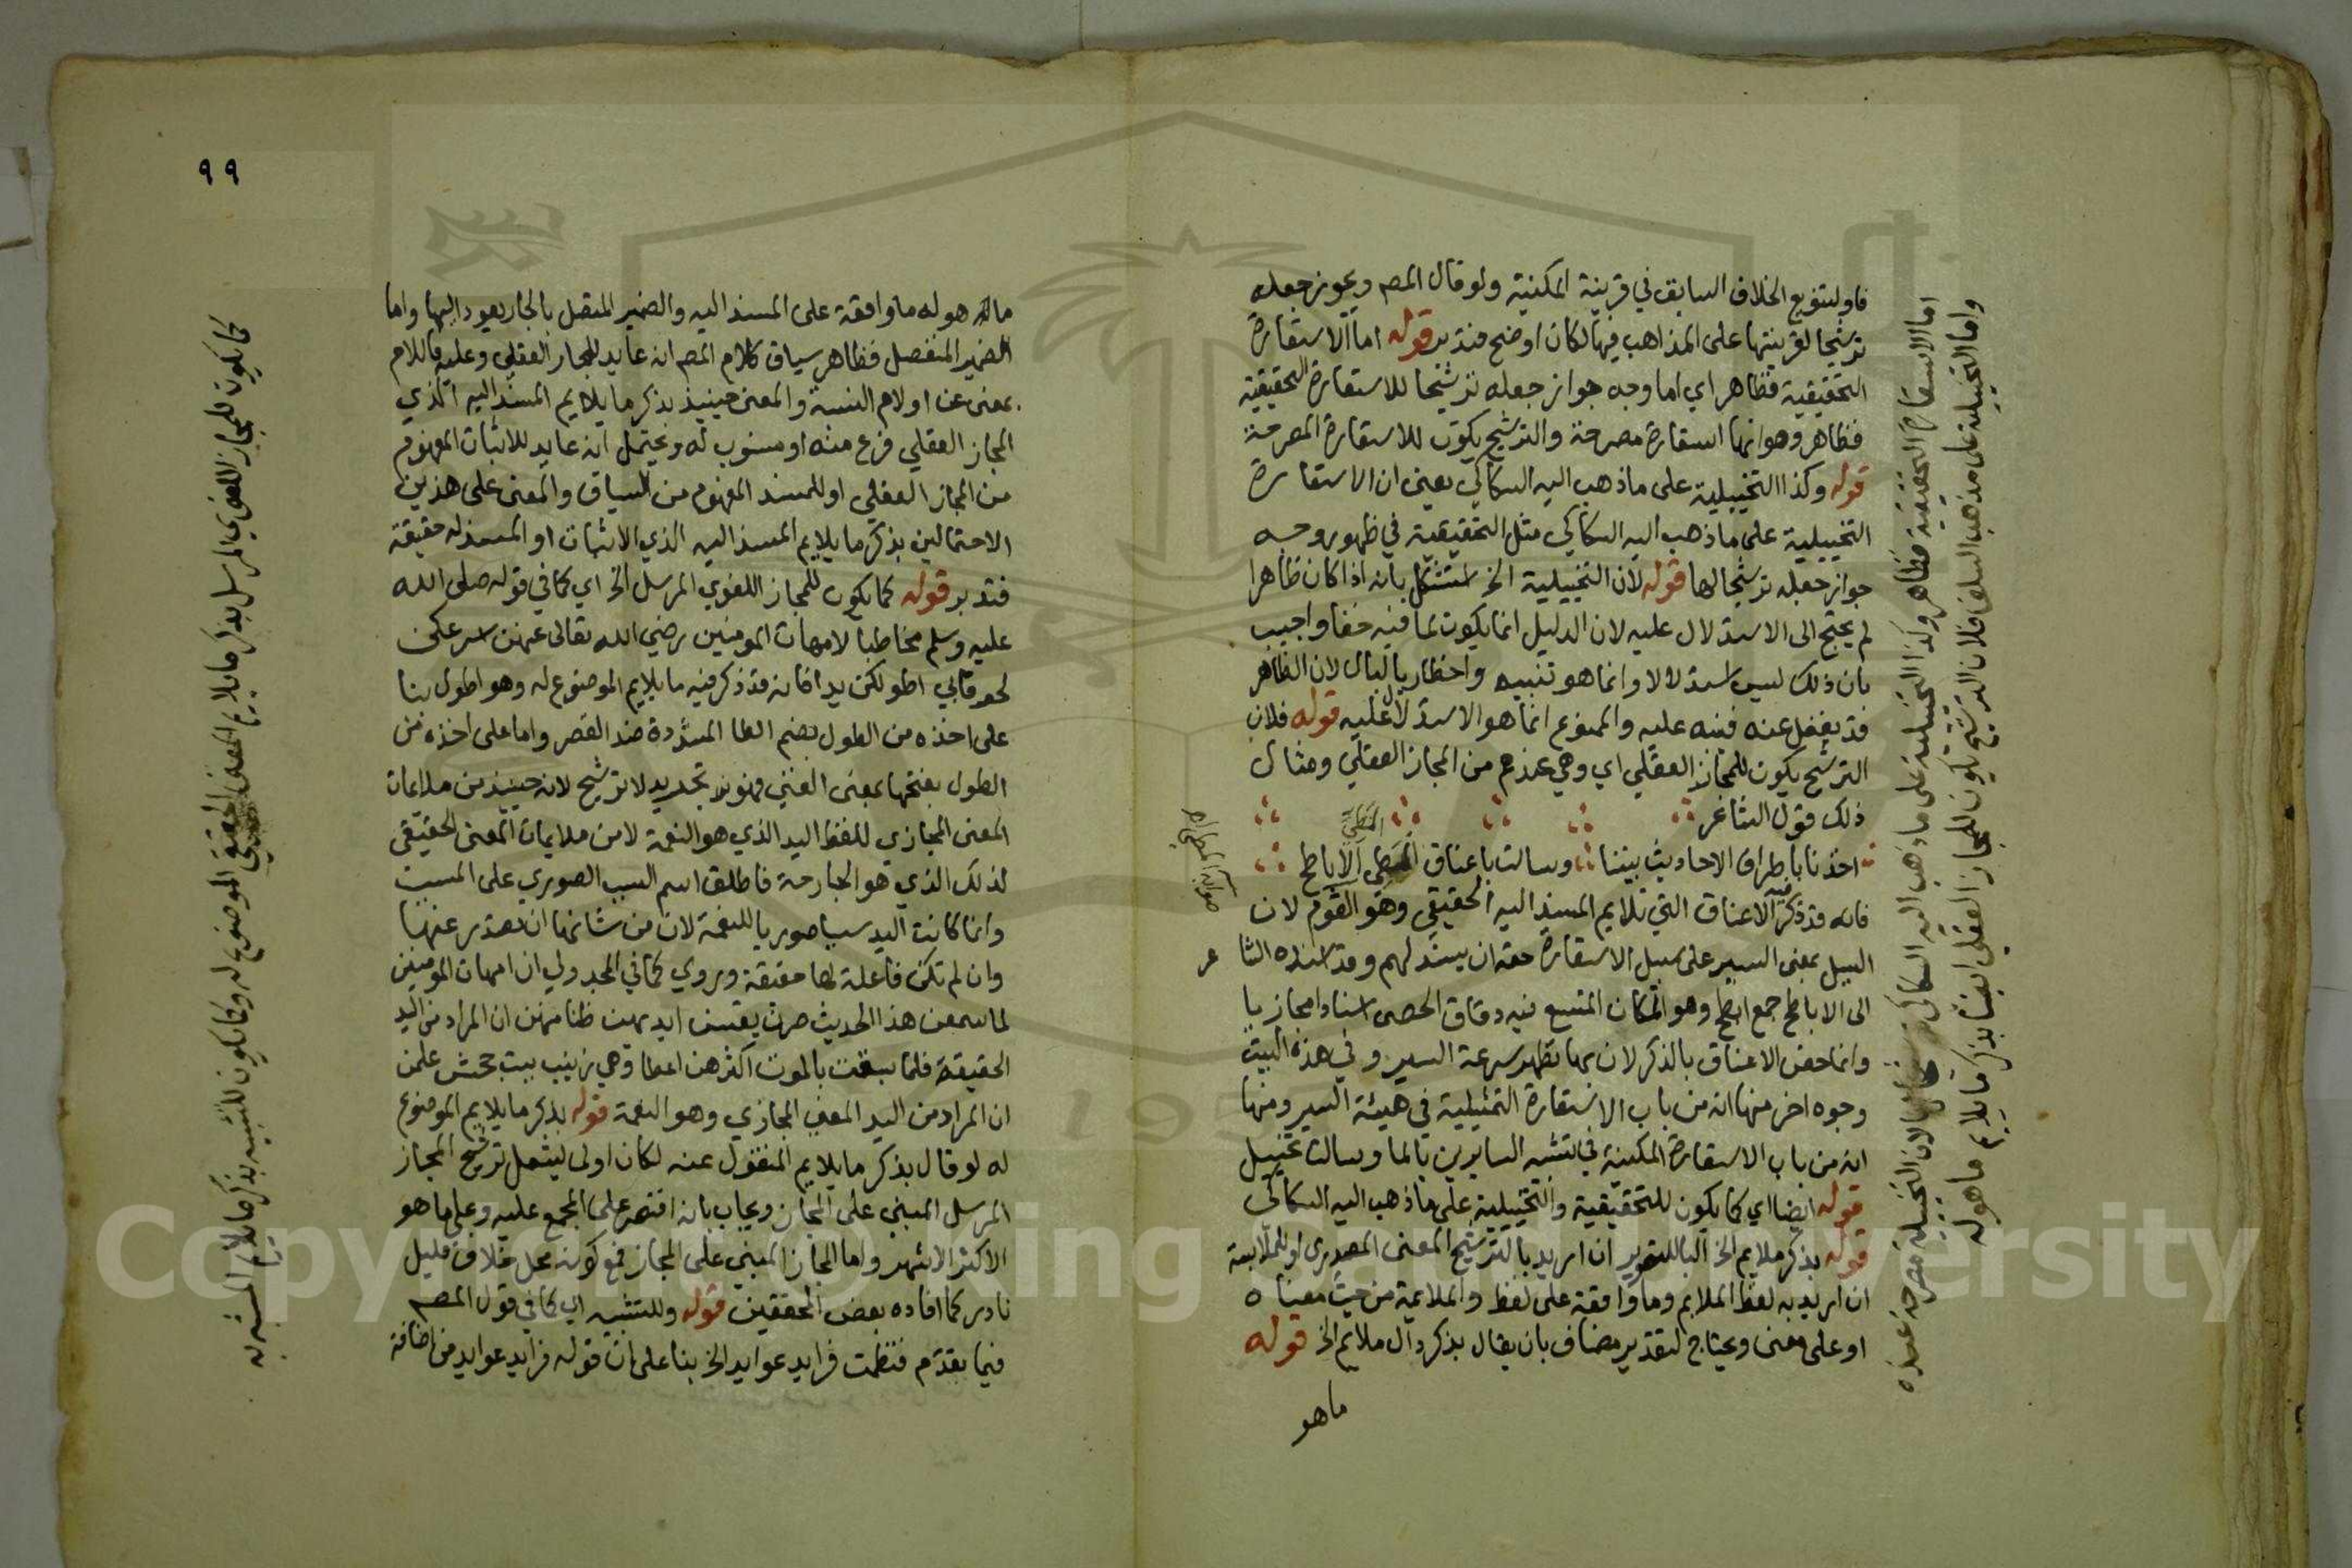 فاو لتنويع الخلاف السابق في قرينة المكنية ولو قال المص ويجوز جعله
ترشيحا لقرينتها على المذاهب فيها لكان اوضح فتدبر قوله اما الاستعارة
التحقيقية فظاهر اي اما وجه جواز جعله ترشيحا للاستعارة التحقيقية
فظاهر وهو انها استعارة مصرحة والترشيح يكون للاستعارة المصرحة
قوله وكذا التخييلية على ما ذهب اليه السكاكي يعني ان الاستعارة
التخييلية على ما ذهب اليه السكاكي مثل التحقيقية في ظهور وجه
جواز جعله ترشيحا لها قوله لان التخييلية الخ استشكل بانه اذا كان ظاهرا
لم يحتج الى الاستدلال عليه لان الدليل انما يكون لما فيه خفا واجيب
بان ذلك ليس استدلالا وانما هو تنبيه واخطار بالبال لان الظاهر
قد يغفل عنه فنبه عليه والممنوع انما هو الاستدلال عليه قوله فلان
الترشيح يكون للمجاز العقلي اي وهي عندهم من المجاز العقلي ومثال
ذلك قول الشاعر
اخذنا باطراف الاحاديث بيننا وسالت باعناق المطي الاباطح
المطي
فانه قد ذكر فيه الاعناق التي تلايم المسند اليه الحقيقي وهو القوم لان
السيل بمعنى السير على سبيل الاستعارة حقه ان يسند لهم وقد اسنده الشاعر
الى الاباطح جمع ابطح وهو المكان المتسع فيه دقاق الحصى اسنادا مجازيا
وانما خص الاعناق بالذكر لان بها تظهر سرعة السير وفي هذه البيت
وجوه اخر منها انه من باب الاستعارة التمثيلية في هيئة السير ومنها
انه من باب الاستعارة المكنية في تشبيه السايرين بالما وسالت تخييل
قوله ايضا اي كما يكون للتحقيقية والتخييلية على ما ذهب اليه السكاكي
قوله بذكر ملايم الخ البا للتصوير ان اريد بالترشيح المعنى المصدري او للملابسة
ان اريد به لفظ الملايم وما واقعة على لفظ والملايمة من حيث معناه
او على معنى ويحتاج لتقدير مضاف بان يقال بذكر دال ملايم الخ قوله
ما هو
اما الاستعارة التحقيقية فظاهر وكذا التخييلية على ما ذهب اليه السكاكي لان التخييلية مصرحة عنده
واما التخييلية على مذهب السلف فلان الترشيح يكون للمجاز العقلي ايضا بذكر ما يلايم ما هو له
ما هو له ما واقعة على المسند اليه والضمير المتصل بالجار يعود اليها واما
الضمير المنفصل فظاهر سياق كلام المص انه عايد للمجاز العقلي وعليه فاللام
بمعنى عن او لام النسبة والمعنى حينيذ بذكر ما يلايم المسند اليه الذي
المجاز العقلي فرع منه او منسوب له ويحتمل انه عايد للاثبات المفهوم
من المجاز العقلي او للمسند المفهوم من السياق والمعنى على هذين
الاحتمالين بذكر ما يلايم المسند اليه الذي الاثبات او المسند له حقيقة
فتدبر قوله كما يكون للمجاز اللغوي المرسل الخ اي كما في قوله صلى الله
عليه وسلم مخاطبا لامهات المومنين رضي الله تعالى عنهن اسرعكن
لحوقا بي اطولكن يدا فانه قد ذكر فيه ما يلايم الموضوع له وهو اطول بنا
على اخذه من الطول بضم الطا المشددة ضد القصر واما على اخذه من
الطول بفتحها بمعنى الغنى فهو تجريد لا ترشيح لانه حينيذ من ملايمات
المعنى المجازي للفظ اليد الذي هو النعمة لا من ملايمات المعنى الحقيقي
لذلك الذي هو الجارحة فاطلق اسم السبب الصوري على المسبب
وانما كانت اليد سببا صوريا للنعمة لان من شانها ان تصدر عنها
وان لم تكن فاعلة لها حقيقة وروي كما في المجدولي ان امهات المومنين
لما سمعن هذا الحديث صرن يقسن ايديهن ظنا منهن ان المراد من اليد
الحقيقة فلما سبقت بالموت اكثرهن اعطا وهي زينب بيت جحش علمن
ان المراد من اليد المعنى المجازي وهو النعمة قوله بذكر ما يلايم الموضوع
له لو قال بذكر ما يلايم المنقول عنه لكان اولى ليشمل ترشيح المجاز
المرسل المبني على المجاز ويجاب بانه اقتصر على المجمع عليه وعلى ما هو
الاكثر الاشهر واما المجاز المبني على المجاز فمع كونه محل خلاف قليل
نادر كما افاده بعض المحققين قوله وللتشبيه اي كما في قول المص
فيما تقدم فنظمت فرايد عوايد الخ بنا على ان قوله فرايد عوايد من اضافة
كما يكون للمجاز اللغوي المرسل بذكر ما يلايم المعنى الحقيقي الموضوع له وكما يكون للتشبيه بذكر ما يلايم المشبه به
٩٩
Copyright © King Saud University